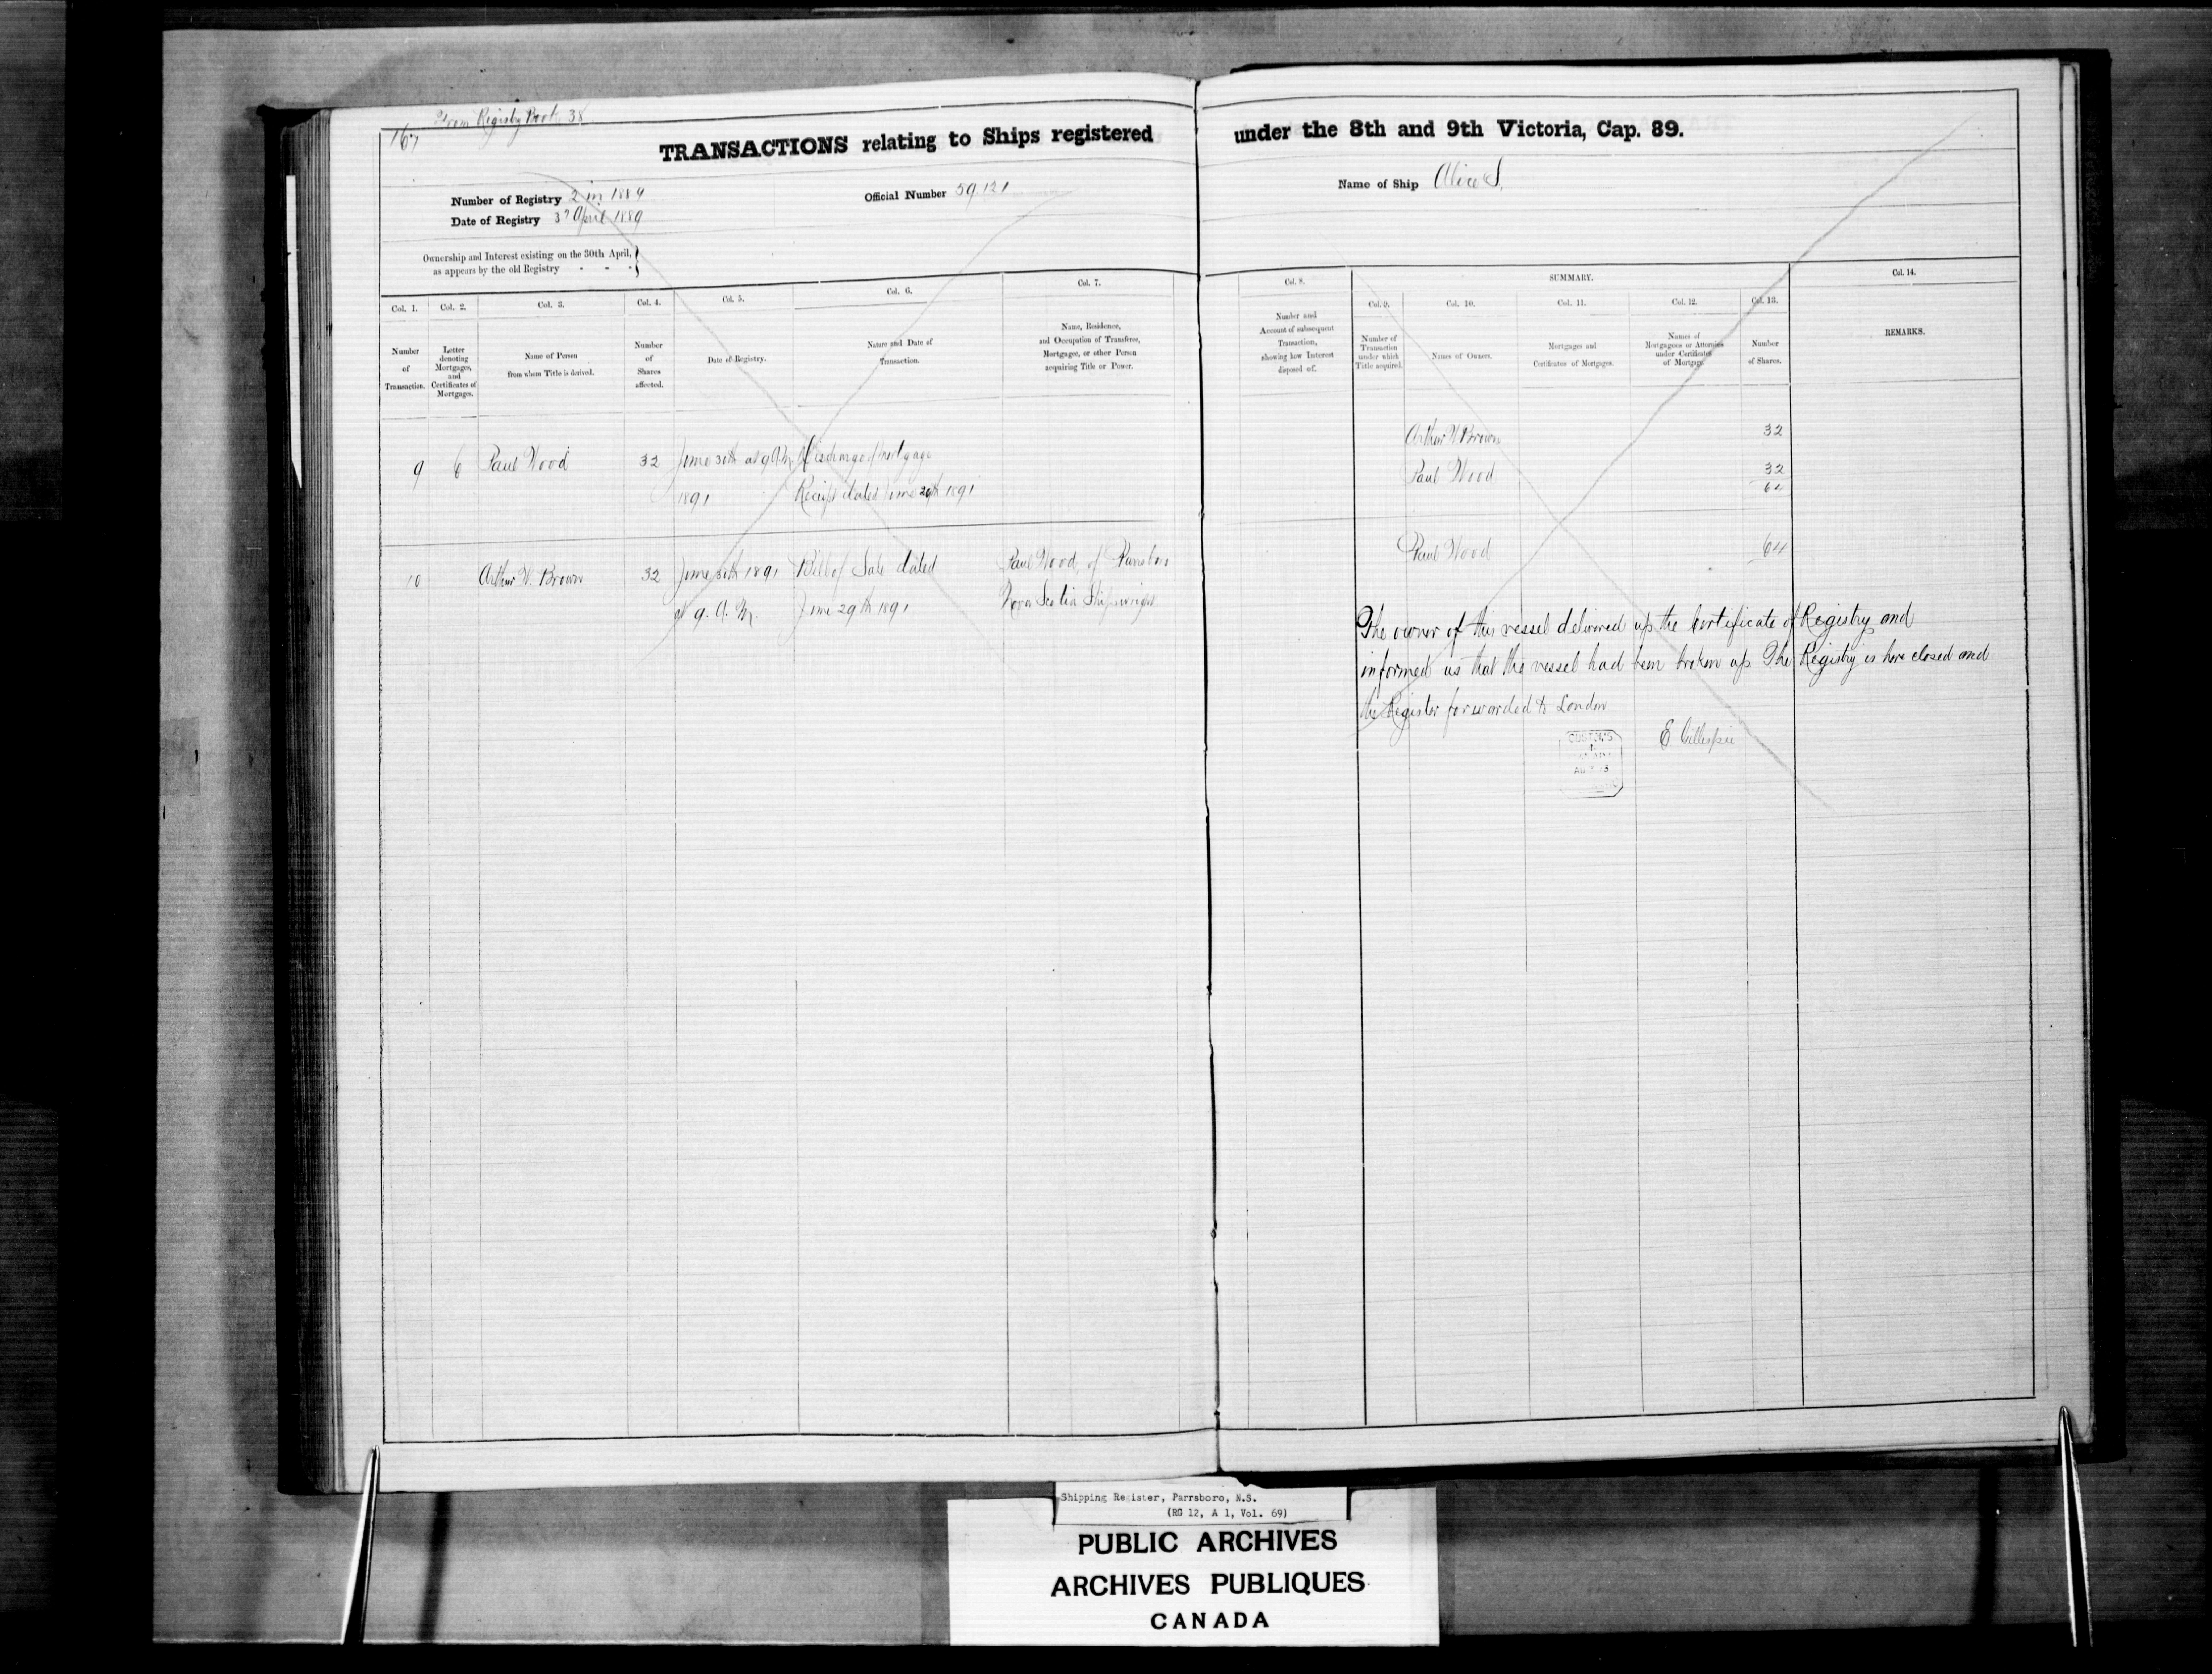 From Registry Book 38
167
TRANSACTIONS relating to Ships registered under the 8th and 9th Victoria, Cap. 89.
Number of Registry 2 in 1889
Official Number 59.121
Name of Ship Alice S.
Date of Registry 3d April 1889
Ownership and Interest existing on the 30th April,
as appears by the old Registry - - -
SUMMARY.
Col. 1.
Number
of
Transaction.
Col. 2.
Letter
denoting
Mortgages,
and
Certificates of
Mortgages.
Col. 3.
Name of Person
from whom Title is derived.
Col. 4.
Number
of
Shares
affected.
Col. 5.
Date of Registry.
Col. 6.
Nature and Date of
Transaction.
Col. 7.
Name, Residence,
and Occupation of Transferee,
Mortgagee, or other Person
acquiring Title or Power.
Col. 8.
Number and
Account of subsequent
Transaction,
showing how Interest
disposed of.
Col. 9.
Number of
Transaction
under which
Title acquired.
Col. 10.
Names of Owners.
Col. 11.
Mortgages and
Certificates of Mortgages.
Col. 12.
Names of
Mortgagees or Attornies
under Certificates
of Mortgage.
Col. 13.
Number
of Shares.
Col. 14.
REMARKS.
9 6 Paul Wood 32 June 30th at 9 A.M. Discharge of Mortgage
1891 Receipt dated June 29th 1891
Arthur W. Brown 32
Paul Wood 32
64
10 Arthur W. Brown 32 June 30th 1891 Bill of Sale dated Paul Wood, of Parrsboro
at 9. A. M. June 29th 1891 Nova Scotia Shipwright
Paul Wood 64
The owner of this vessel delivered up the Certificate of Registry and
informed us that the vessel had been broken up The Registry is here closed and
the Register forwarded to London
E Gillespie
CUSTOMS
Shipping Register, Parrsboro, N.S.
(RG 12, A 1, Vol. 69)
PUBLIC ARCHIVES
ARCHIVES PUBLIQUES
CANADA